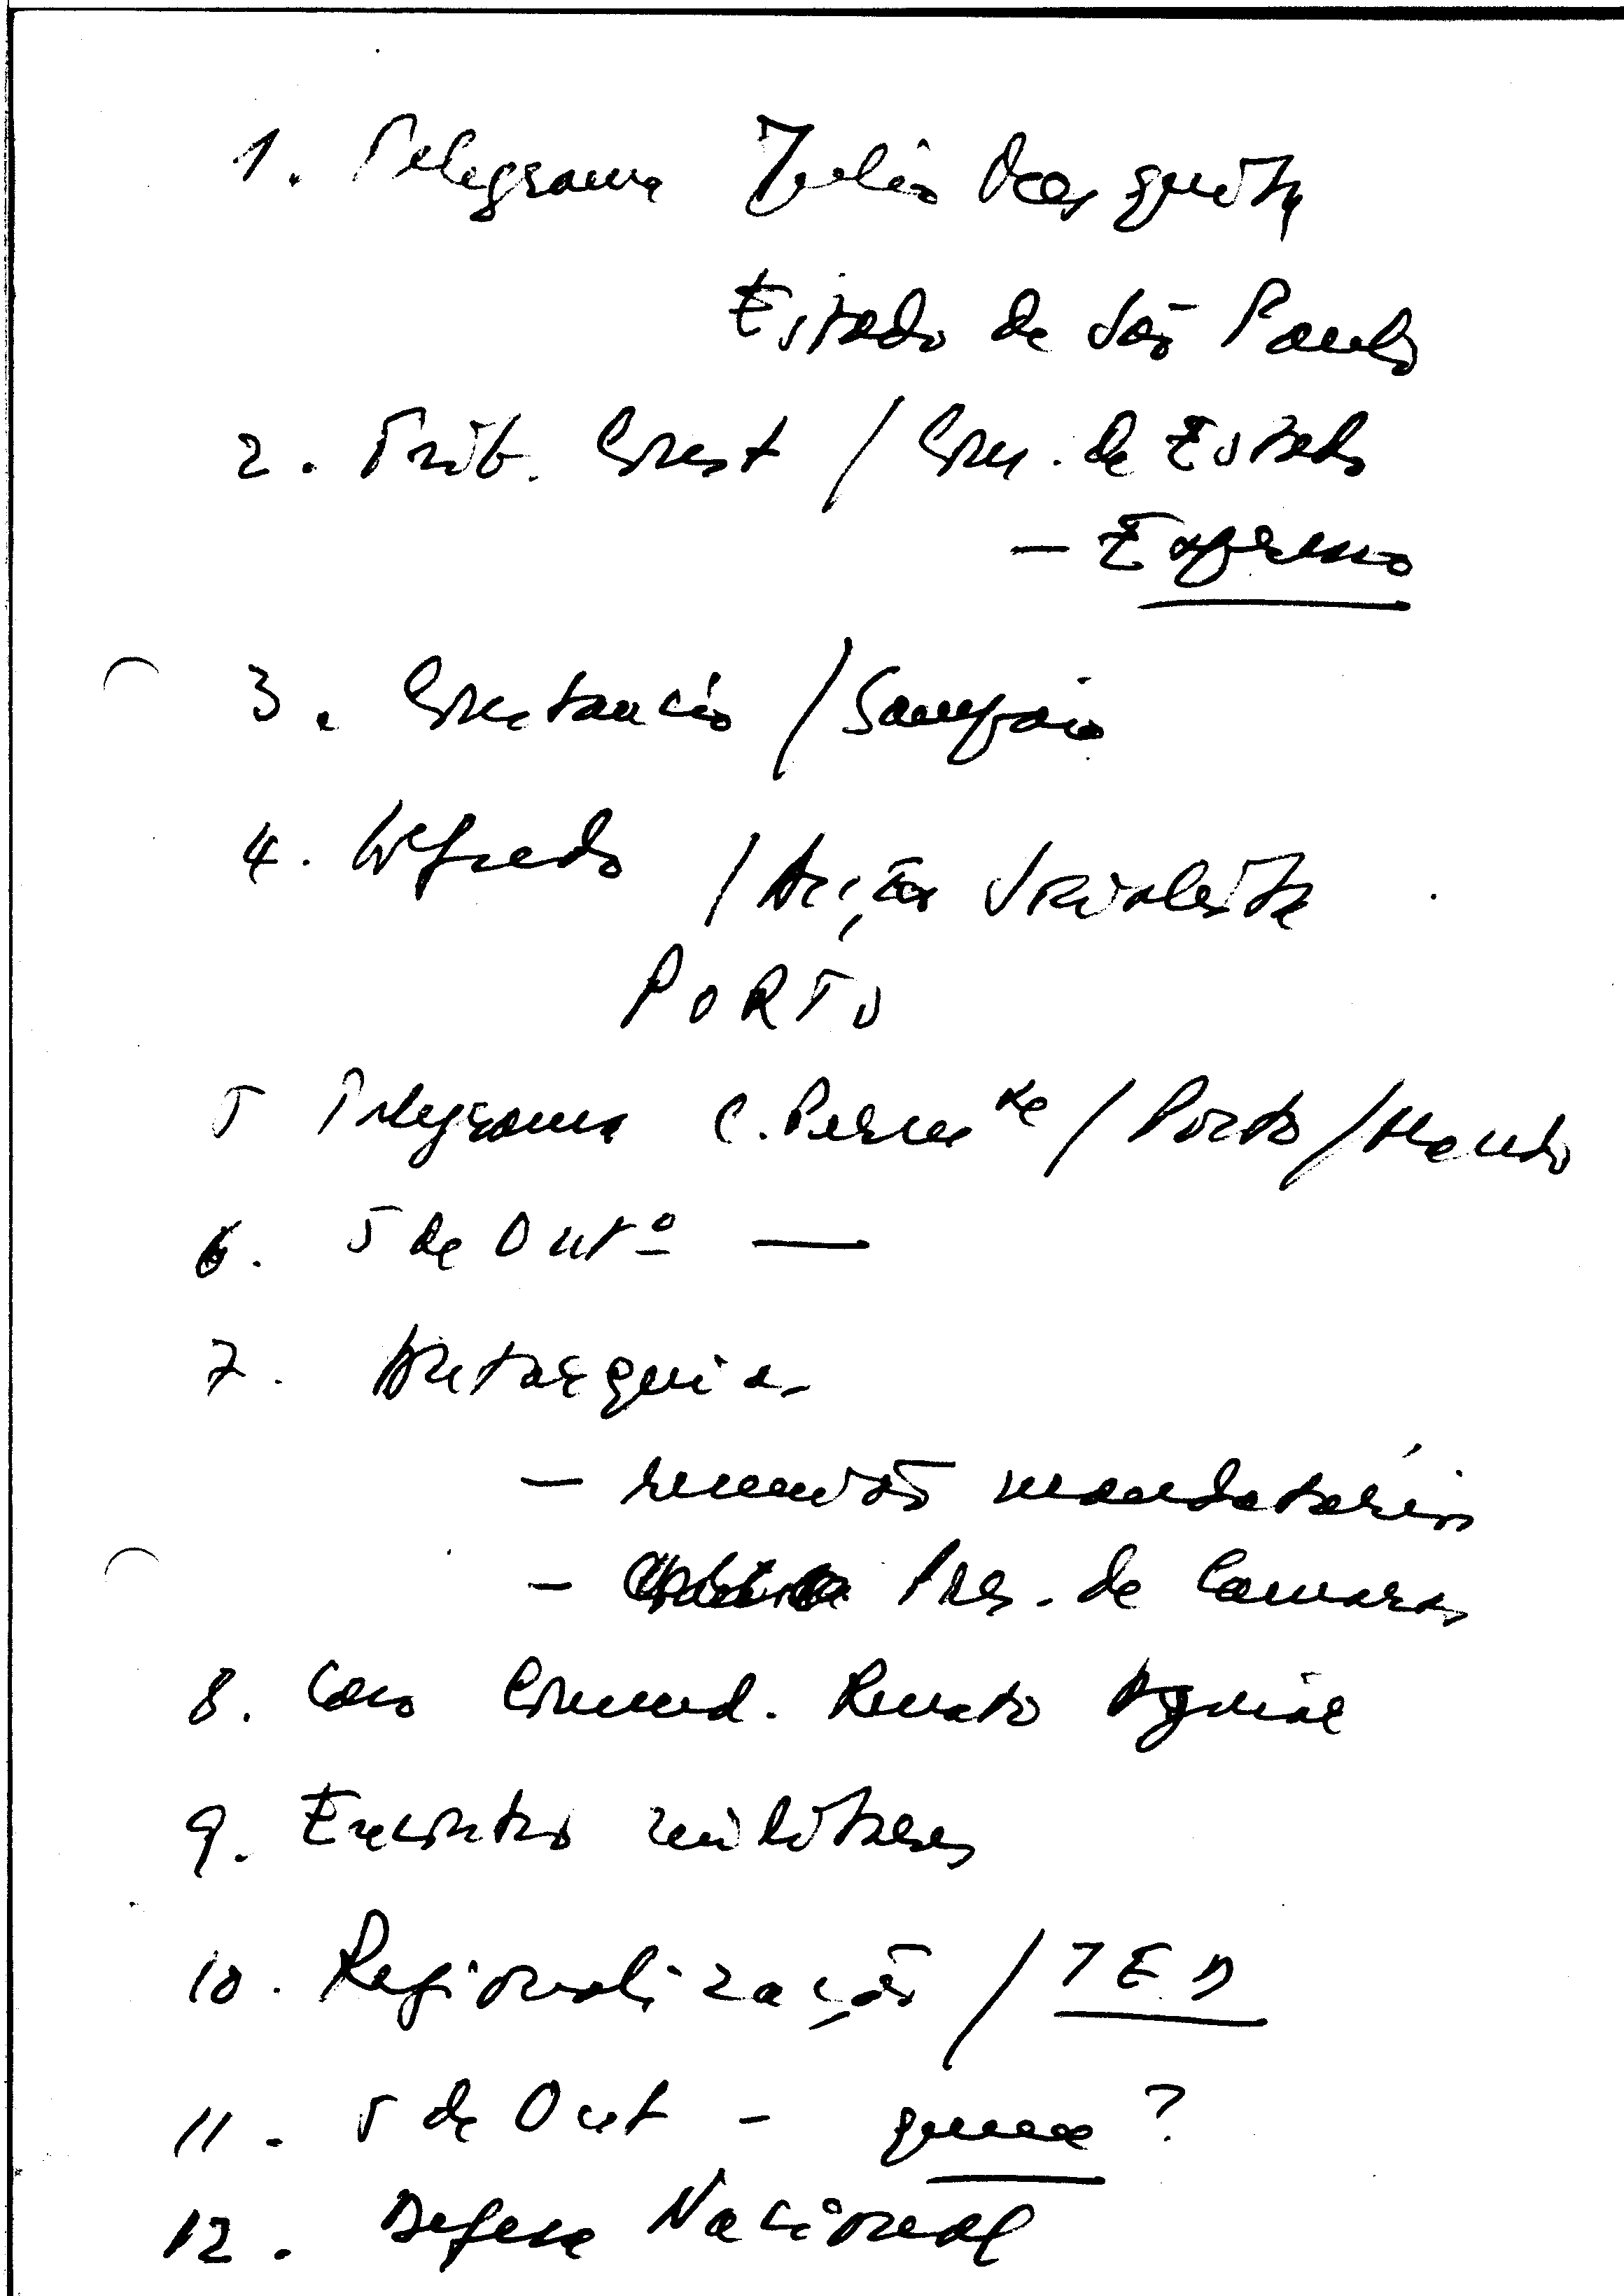 1. Telegrama Julio Mesquita
Estado de São Paulo
2. Trib. Const / Cons. de Estado
- Expresso
3. Constancio / Sampaio
4. Alfredo / Acção Socialista
PORTO
5 Telegrama C. Perm te / Porto /
6. 5 de Out º —
7. Autarquias
- reunião mandatários
- Pres. de Camaras
8. Caso Comend. Renato Aguiar
9. Encontro militares
10. Regionalização / TED
11. 5 de Out - quem ?
12. Defesa Nacional